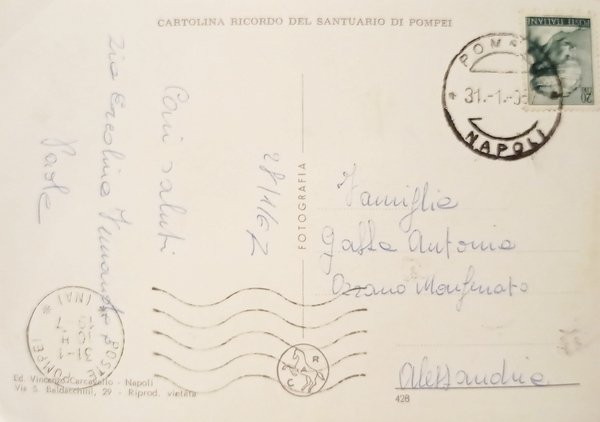 CARTOLINA RICORDO DEL SANTUARIO DI POMPEI
POSTE ITALIANE
NAPOLI
31.-1.-
28/1/67
Cari saluti
Zia Ercolina
Paola
FOTOGRAFIA
Famiglia
Gatta Antonio
Ozzano Monferrato
Alessandria
POMPEI
(NA)
31-1
Ed. Vincenzo Carcavallo - Napoli
Via S. Baldacchini, 29 - Riprod. vietata
428